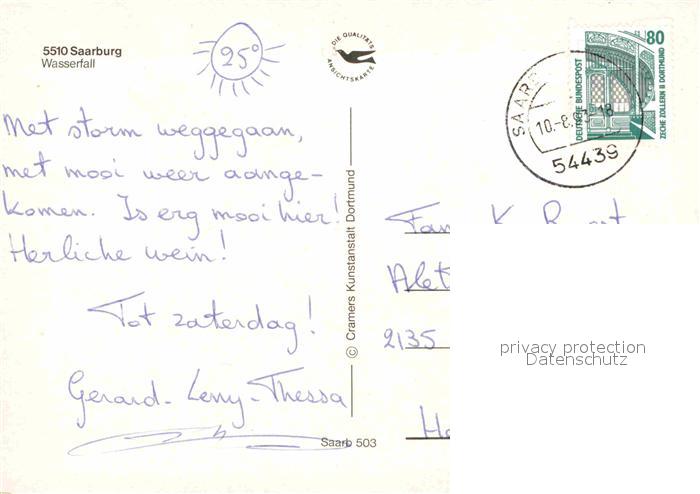 5510 Saarburg
Wasserfall
25°
DIE QUALITÄTS
ANSICHTSKARTE
80
DEUTSCHE BUNDESPOST
ZECHE ZOLLERN II DORTMUND
SAAR
10.-8. -18
54439
Met storm weggegaan,
met mooi weer aange-
komen. Is erg mooi hier!
Herliche wein!
Tot zaterdag!
Gerard-Leny-Thessa
© Cramers Kunstanstalt Dortmund
Saarb 503
Fam K.
2135
privacy protection
Datenschutz